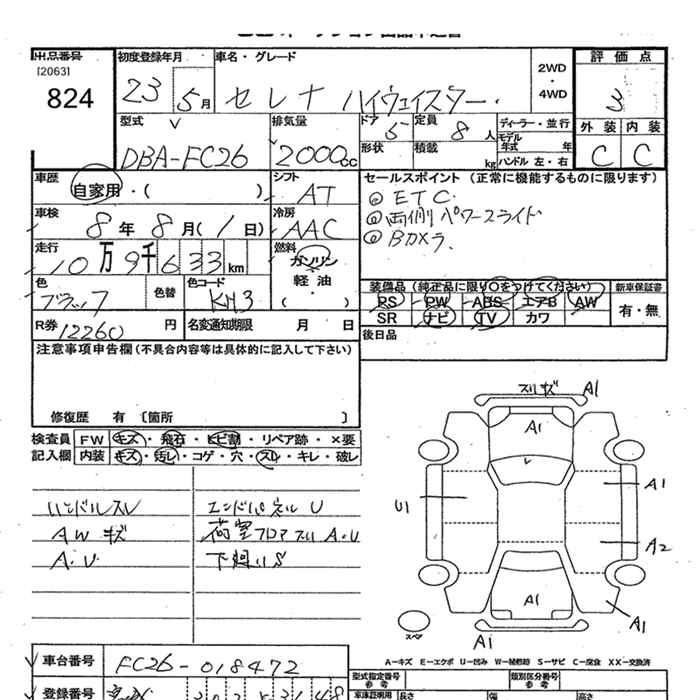 出品番号 初度登録年月 車名・グレード 2WD・4WD 評価点
[2063]
824 23 5月 セレナ ハイウェイスター 3
型式 排気量 ドア 5 定員 8人 ディーラー・並行 外装 内装
DBA-FC26 2000cc 形状 積載 kg モデル年式 年 ハンドル 左・右 C C
車歴 自家用・( ) シフト AT セールスポイント (正常に機能するものに限ります)
車検 8年 8月(1日) 冷房 AAC ETC
両側パワースライド
走行 10万9千633km 燃料 ガソリン 軽油 ・( ) Bカメラ
色 ブラック 色替 色コード KH3 装備品 (純正品に限り○をつけてください) 新車保証書
PS PW ABS エアB AW 有・無
SR ナビ TV カワ
R券 12260円 名変通知期限 月 日 後日品
注意事項申告欄(不具合内容等は具体的に記入して下さい)
修復歴 有 〔箇所 〕
検査員 FW キズ・飛石・トビ割・リペア跡・×要
記入欄 内装 キズ・汚レ・コゲ・穴・スレ・キレ・破レ
ハンドルスレ エンドパネルU
AWキズ 荷室フロアスレ A・U
A・U 下廻りS
スリキズ A1
A1
U1 A1
A2
A1 A1
スペア A1
A―キズ E―エクボ U―凹み W―補修跡 S―サビ C―腐食 XX―交換済
車台番号 FC26-018472
登録番号
型式指定番号 類別区分番号
参考 参考
車庫証明用 長さ 幅 高さ